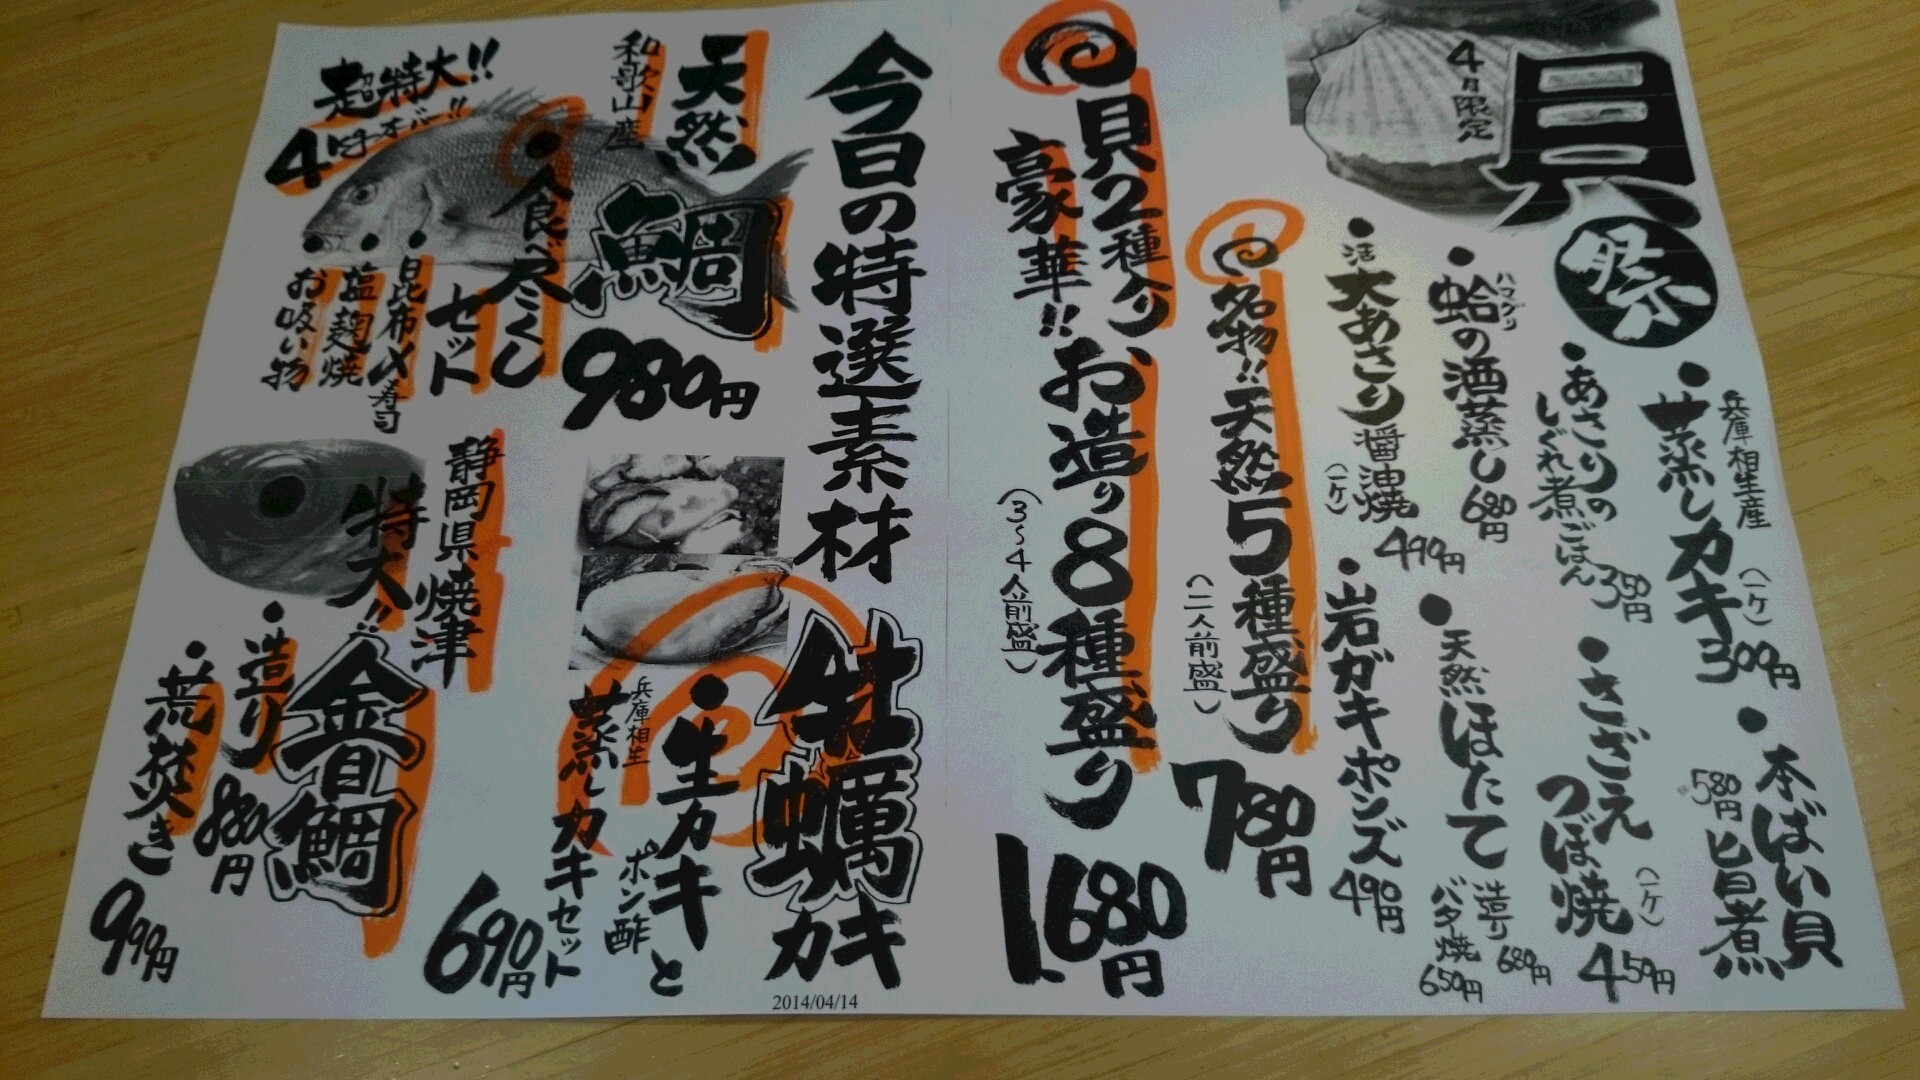 貝祭
4月限定
・兵庫相生産
蒸しカキ(一ケ)300円
・本ばい貝
旨煮580円
・あさりの
しぐれ煮ごはん380円
・さざえ
つぼ焼(一ケ)450円
・蛤の酒蒸し680円
ハマグリ
・天然ほたて
造り680円
バター焼650円
・活大あさり醤油焼
(一ケ)490円
・山岩ガキポンズ490円
名物!!天然5種盛り
(二人前盛)
780円
貝2種入り
豪華!!お造り8種盛り
(3~4人前盛)
1680円
今日の特選素材
牡蠣カキ
・生カキと
ポン酢
兵庫相生
蒸しカキセット
690円
天然
和歌山産
鯛
超特大!!
4キロオーバー!!
・食べ尽くし
セット
980円
・昆布〆寿司
・塩麹焼
・お吸い物
静岡県焼津
特大!!金目鯛
・造り880円
・荒焚き990円
2014/04/14